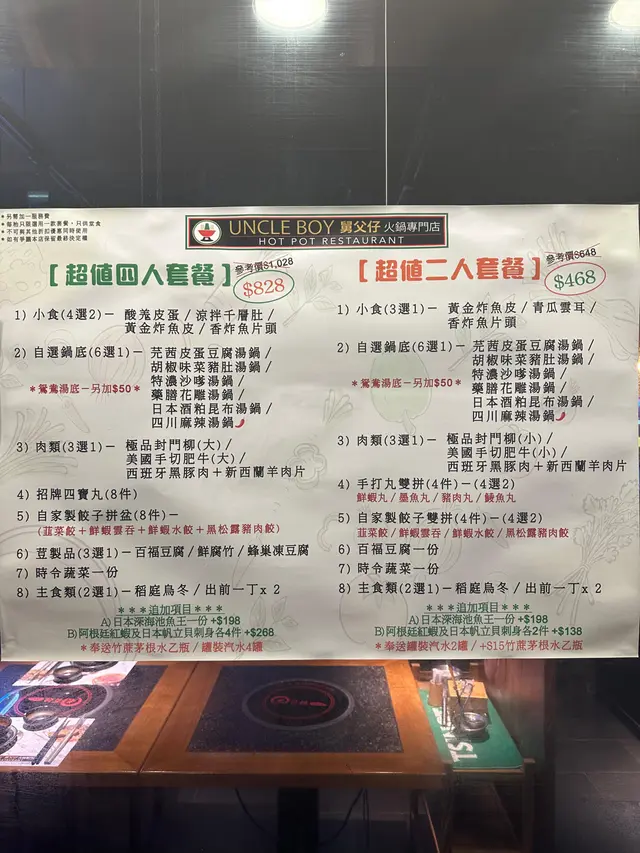 *另需加一服務費
*每枱只限選用一款套餐,只供堂食
*不可與其他折扣優惠同時使用
*如有爭議本店保留最終決定權
UNCLE BOY 舅父仔 火鍋專門店
HOT POT RESTAURANT
【超值四人套餐】
參考價$1,028
$828
1) 小食(4選2)— 酸羗皮蛋/涼拌千層肚/
黃金炸魚皮/香炸魚片頭
2) 自選鍋底(6選1)— 芫茜皮蛋豆腐湯鍋/
胡椒味菜豬肚湯鍋/
特濃沙嗲湯鍋/
*鴛鴦湯底—另加$50*
藥膳花雕湯鍋/
日本酒粕昆布湯鍋/
四川麻辣湯鍋
3) 肉類(3選1)— 極品封門柳(大)/
美國手切肥牛(大)/
西班牙黑豚肉+新西蘭羊肉片
4) 招牌四寶丸(8件)
5) 自家製餃子拼盆(8件)—
(韮菜餃+鮮蝦雲吞+鮮蝦水餃+黑松露豬肉餃)
6) 荳製品(3選1)—百福豆腐/鮮腐竹/蜂巢凍豆腐
7) 時令蔬菜一份
8) 主食類(2選1)—稻庭烏冬/出前一丁x 2
***追加項目***
A)日本深海池魚王一份 +$198
B)阿根廷紅蝦及日本帆立貝刺身各4件 +$268
*奉送竹蔗茅根水乙瓶/罐裝汽水4罐
【超值二人套餐】
參考價$648
$468
1) 小食(3選1)— 黃金炸魚皮/青瓜雲耳/
香炸魚片頭
2) 自選鍋底(6選1)— 芫茜皮蛋豆腐湯鍋/
胡椒味菜豬肚湯鍋/
特濃沙嗲湯鍋/
*鴛鴦湯底—另加$50*
藥膳花雕湯鍋/
日本酒粕昆布湯鍋/
四川麻辣湯鍋
3) 肉類(3選1)— 極品封門柳(小)/
美國手切肥牛(小)/
西班牙黑豚肉+新西蘭羊肉片
4) 手打丸雙拼(4件)—(4選2)
鮮蝦丸/墨魚丸/豬肉丸/鯪魚丸
5) 自家製餃子雙拼(4件)—(4選2)
韮菜餃/鮮蝦雲吞/鮮蝦水餃/黑松露豬肉餃
6) 百福豆腐一份
7) 時令蔬菜一份
8) 主食類(2選1)—稻庭烏冬/出前一丁x 2
***追加項目***
A)日本深海池魚王一份 +$198
B)阿根廷紅蝦及日本帆立貝刺身各2件 +$138
*奉送罐裝汽水2罐/+$15竹蔗茅根水乙瓶